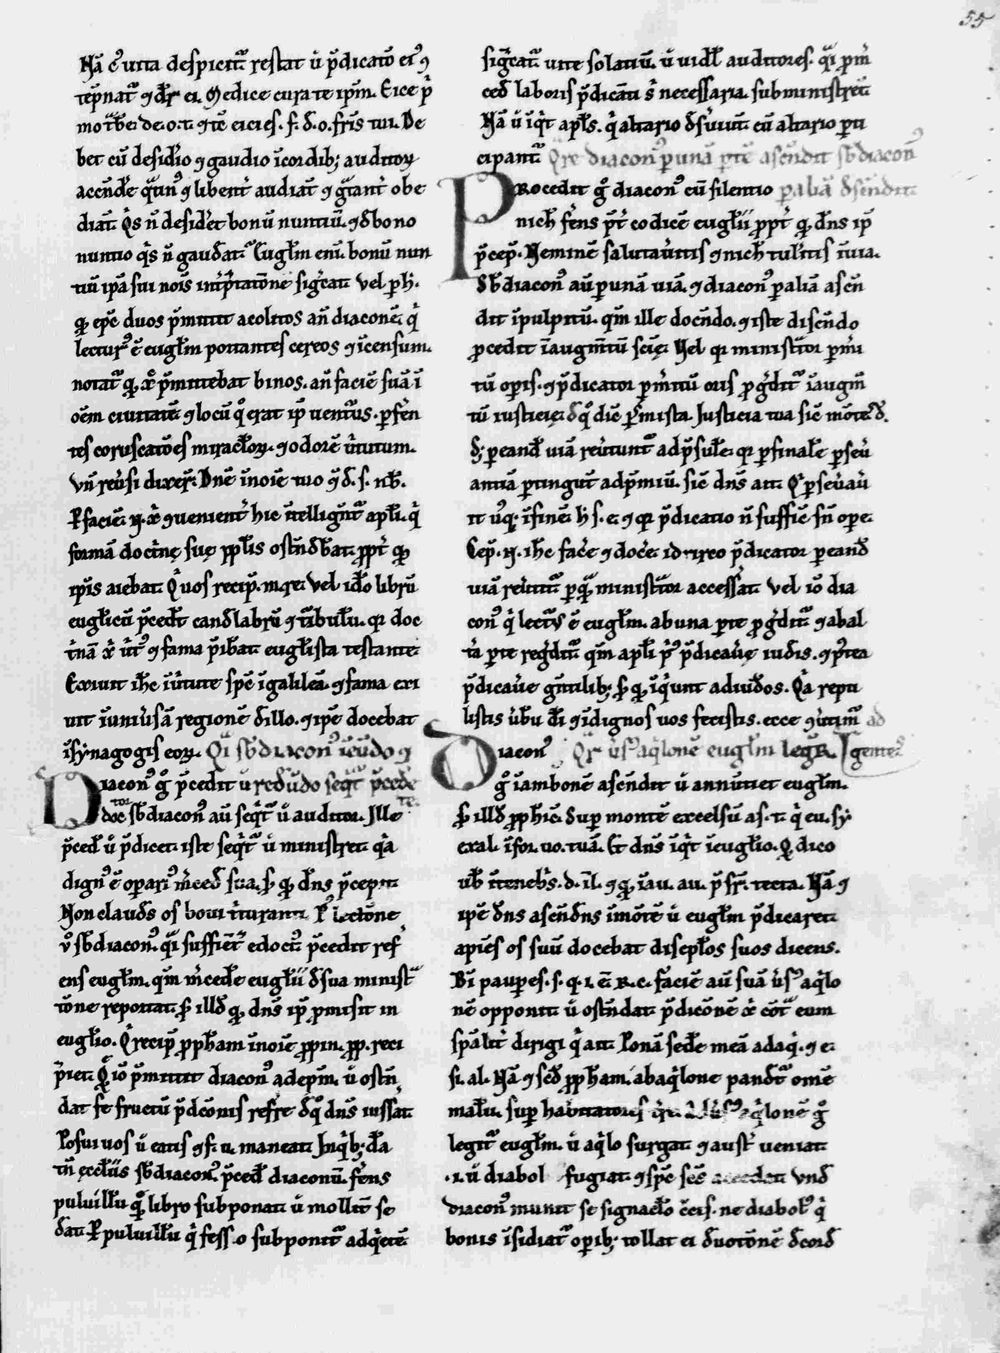 55
Nā cuí uita despicit̄ restat ut p̄dicatō eiꝰ ꝯ
tēpnat̄ ꝯ dr̄ ei. Medice cura te ip̄m. Eice p̄
mo tbē. de. o. t. ꝯ tē eicies. f. d. o. fr̄is tui. De
bet cū desid'io ꝯ gaudio ī cordib; auditoꝝ
accēde q̄tinꝰ ꝯ libent̄ audiāt ꝯ gratant̄ obe
diāt. Q̄s n̄ desid'et bonū nuntiū. ꝯ d' bono
nuntio q̄s n̄ gaudeat. Eugl̄m eni bonū nun
tiū ip̄a sui nois int̄p̄tatōne sig̅cat. vel p̄h.
ꝙ ep̄c duos p̄mittit acolitos an̄ diaconē. q̄
lecturꝰ ē eugl̄m portantes cereos ꝯ īcensum.
notat̄ ꝙ xp̄c p̄mittebat binos. an̄ faciē suā ī
oēm ciuitatē ꝯ locū q̊ erat ip̄ uenturꝰ. p̄ferē
tes coruscatōes miracl̄oꝝ. ꝯ odorē uirtutum.
Vn̄ reuersi dixer̄. Dn̄e ī noīe tuo ꝯ d. s. nb̄.
P facie. n̄. xp̄i ꝯuenient̄ hic ītelligunt̄ apl̄i. q̄
formā doctrīnę suę ppl̄is ostēdebāt. ppt̄ ꝙ
ipīs aiebat. Quos recip̄. m. re. vel id'o librū
euglicū p̄cedt̄ candlabrū ꝯ turibulū. q̄ doc
t̄nā xp̄i uirtꝰ ꝯ fama p̄ibat. euglista testante.
Exiuit ih̄c ī uirtute sp̄c ī galileā. ꝯ fama exi
uit ī uniūsā regionē d' illo. ꝯ ip̄e docebat
ī synagogis eoꝝ. Qī sb̄diaconꝰ ī eūdo ꝯ
Diaconꝰ g̊ p̄cedit ut redeūdo seq̄t̄ p̄cede
doctor sb̄diaconꝰ aū seq̄t̄ ut auditor. Ille te.
p̄ced̄ ut p̄dicet. iste seq̄t̄ ut ministret. q̄a
dignꝰ ē operariꝰ mercede sua. s; ꝙ dn̄s p̄cepit
Non claud's os boui t̄turanti. P lectōne
v̊ sb̄diaconꝰ. q̄si suffiēt̄ edoctꝰ p̄cedit ref̄
ens eugl̄m. qm̄ mercede eugl̄ii d' sua minist̄
tōne reportat. s; illd̄ ꝙ dn̄s ip̄ p̄misit in
eugl̄io. Q̄ recip̄ pph̄am ī noīe pph̄. m. pp. reci
piet. Qd' io p̄mittit diaconꝰ ad ep̄m. ut ostē
dat se fructū p̄dicōnis ref̄re d' q̊ dn̄s iussat
Posui uos ut eatis ꝯ f. u. maneat. In q̄b; dā
tn̄ eccl̄iis sb̄diaconꝰ p̄ced̄ diaconū. fens
puluillū q̄ libro subponat ut mollit̄ se
deat. P puluillū q̄ fess. o subponit̄ ad q̄etē
sig̅cat̄ uite solatiū. ut uid̄l auditores. q̄si pm̄
ced̄ laboris p̄dicāti sibi necessaria. subministrēt.
Nā ut īq̄t apl̄s. q̄ altario d'seruiūt cū altario p̄ti
cipant̄. Qre diaconꝰ p unā p̄tē ascēdit sb̄diaconꝰ
PRocedit g̊ diaconꝰ cū silentio p aliā d'scēdit.
nich̄ ferens p̄t̄ codicē eugl̄ii ppt̄ ꝙ dn̄s ip̄
p̄cep̄. Neminē salutau'itis ꝯ nich̄ tul'itis ī uia.
Sb̄diaconꝰ aū p unā uiā. ꝯ diaconꝰ p aliā ascē
dit ī pulpitū. qm̄ ille docēdo. ꝯ iste discēdo
pcedit ī augm̄tū sciē. Vel qr ministrator p̄mi
tū opis. ꝯ p̄dicator p̄mitiū oris pg'dit̄ ī augm̄
tū iusticię. d' q̊ diē p̄mista. Justicia tua sic mōtes d.
d; p eand̄ uiā reūtunt̄ ad p̄sulē. qr p finalē p̄seū
antiā p̄tingut ad p̄miū. sic dn̄s ait. Q p̄seuāu
it usq; ī finē. h̄ s. e. ꝯ qr p̄dicatio n̄ suffic̄ sn̄ ope.
Cep̄. n̄. ih̄c facē ꝯ docē. idcirco p̄dicator p eand̄
uiā reūtit̄ p quā ministrator accesserat. Vel iō dia
conꝰ q̄ lecturꝰ ē eugl̄m. ab una pte pg'dit̄ ꝯ ab al
tā pte reg'dit̄. qm̄ apl̄i p̄ꝰ p̄dicaūe iudis. ꝯ p̄tea
p̄dicaūe gn̄tilib; s; ꝙ īq̄unt ad iud̄os. Qa repu
listis ūbū di ꝯ īdignos uos fecistis. ecce ꝯūtim̄ ad
Diaconꝰ Qr ūsꝰ aq̄lonē eugl̄m legit̄. gentes
g̊ ī ambonē ascēdit ut annūtiet eugl̄m.
s; illd̄ pph̄ię. sup montē excelsū as. t. q̄ eu. sy.
exal. ī for. uo. tuā. Et dn̄s īq̄t ī eugl̄io. Qd dico
uob̄ ī tenebr̄s. d. ī l. ꝯ qd ī au. au. p̄ sr̄. tecta. Nā ꝯ
ip̄e dn̄s ascēdens ī mōtē ut eugl̄m p̄dicaret.
apiēs os suū docebat discipl̄os suos dicens.
Bti paupes. s. q. i. ē. R. c. faciē aū suā ūsꝰ aq̄lo
nē opponit ut ostēdat p̄dicōnē xp̄i cōt̄ eum
sp̄alit̄ dirigi q̄ ait. Ponā sedē meā ad aq̄. ꝯ e.
si. al. Nā ꝯ scd̄ pph̄am. ab aq̄lone pandet̄ omē
malū. sup habitatores aq̄lonē g̊
legit̄ eugl̄m. ut aq̄lo surgat ꝯ aust̄ ueniat.
.i. ut diabol fugiat. ꝯ sp̄c scs̄ accedat. vnd̄
diaconꝰ munit se signacl̄o crucis. ne diabolꝰ q̄
bonis īsidiat̄ opib; tollat ei d'uotōnē d' cord̄